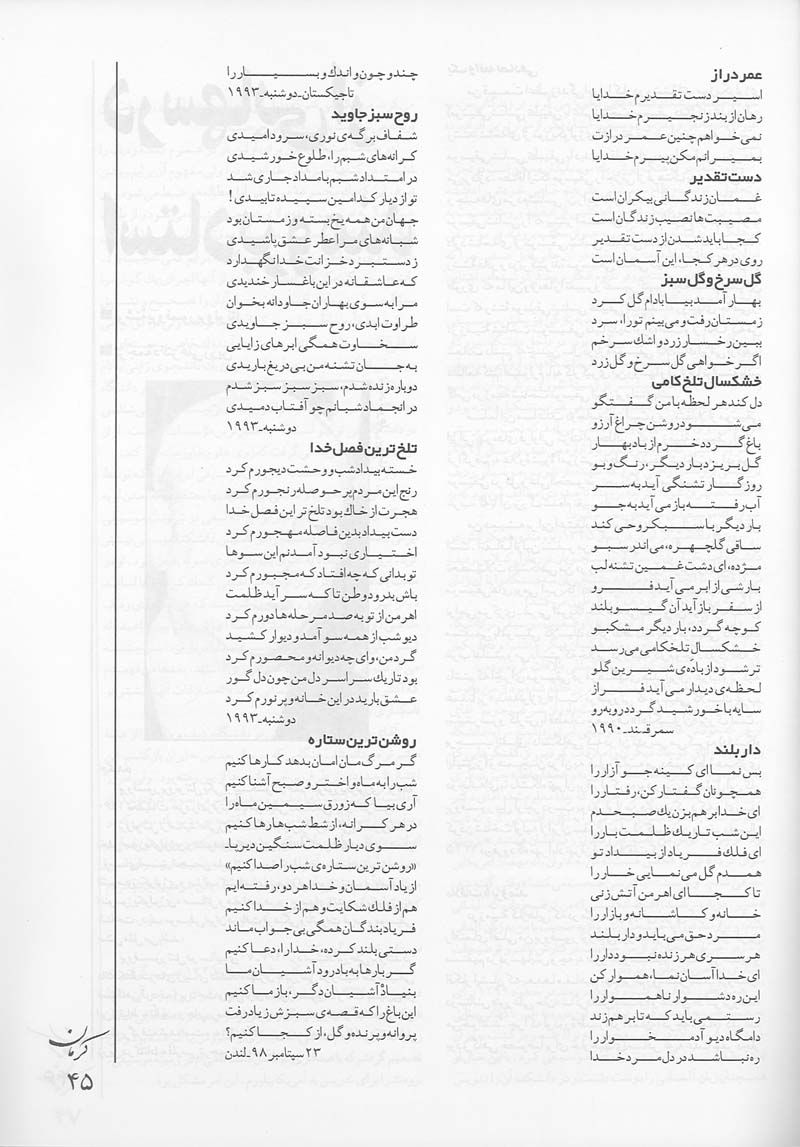 عمر دراز
اسیر دست تقدیرم خدایا
رهان از بند زنجیرم خدایا
نمی خواهم چنین عمر درازت
بمیرانم مکن پیرم خدایا
دست تقدیر
غمان زندگانی بیکران است
مصیبت ها نصیب زندگان است
کجا باید شدن از دست تقدیر
روی در هر کجا، این آسمان است
گل سرخ و گل سبز
بهار آمد بیا بادام گل کرد
زمستان رفت و می بینم تو را، سرد
ببین رخسار زرد و اشك سرخم
اگر خواهی گل سرخ و گل زرد
خشکسال تلخ کامی
دل کند هر لحظه با من گفتگو
می شود روشن چراغ آرزو
باغ گردد خرم از باد بهار
گل بریزد بار دیگر، رنگ و بو
روزگار تشنگی آید به سر
آب رفته باز می آید به جو
بار دیگر با سبکروحی کند
ساقی گلچهره، می اندر سبو
مژده، ای دشت غمین تشنه لب
بارشی از ابر می آید فرو
از سفر باز آید آن گیسو بلند
کوچه گردد، بار دیگر مشکبو
خشکسال تلخکامی می رسد
تر شود از باده‌ی شیرین گلو
لحظه‌ی دیدار می آید فراز
سایه با خورشید گردد روبه رو
سمرقند ـ ۱۹۹۰
دار بلند
بس نما ای کینه جو آزار را
همچونان گفتار کن، رفتار را
ای خدا بر هم بزن یك صبحدم
این شب تاریك ظلمت بار را
ای فلك فریاد از بیداد تو
همدم گل می نمایی خار را
تا کجا ای اهرمن آتش زنی
خانه و کاشانه و بازار را
مرد حق می باید و دار بلند
هر سری هرزنده نبود دار را
ای خدا آسان نما، هموار کن
این ره دشوار ناهموار را
رستمی باید که تا بر هم زند
دامگاه دیو آدمخوار را
ره نباشد در دل مرد خدا
چند و چون و اندك و بسیار را
تاجیکستان ـ دوشنبه ـ ۱۹۹۳
روح سبز جاوید
شفاف برگه ی نوری، سرود امیدی
کرانه های شبم را، طلوع خورشیدی
در امتداد شبم بامداد جاری شد
تو از دیار کدامین سپیده تابیدی!
جهان من همه یخ بسته و زمستان بود
شبانه های مرا عطر عشق پاشیدی
ز دستبرد خزانت خدا نگهدارد
که عاشقانه در این باغسار خندیدی
مرا به سوی بهاران جاودانه بخوان
طراوت ابدی، روح سبز جاویدی
سخاوت همگی ابرهای زایایی
به جان تشنه من بی دریغ باریدی
دوباره زنده شدم، سبز سبز سبز شدم
در انجماد شبانم چو آفتاب دمیدی
دوشنبه ـ ۱۹۹۳
تلخ ترین فصل خدا
خسته بیداد شب و وحشت دیجورم کرد
رنج این مردم پر حوصله رنجورم کرد
هجرت از خاك بود تلخ تر این فصل خدا
دست بیداد بدین فاصله مهجورم کرد
اختیاری نبود آمدنم این سوها
تو بدانی که چه افتاد که مجبورم کرد
باش بدرود وطن تا که سر آید ظلمت
اهرمن از تو به صد مرحله ها دورم کرد
دیو شب از همه سو آمد و دیوار کشید
گرد من، وای چه دیوانه و محصورم کرد
بود تاریك سراسر دل من چون دل گور
عشق بارید در این خانه و پر نورم کرد
دوشنبه ـ ۱۹۹۳
روشن ترین ستاره
گر مرگ مان امان بدهد کارها کنیم
شب را به ماه و اختر و صبح آشنا کنیم
آری بیا که زورق سیمین ماه را
در هر کرانه، از شط شب ها رها کنیم
سوی دیار ظلمت سنگین دیرپا ـ
«روشن ترین ستاره ی شب را صدا کنیم»
از یاد آسمان و خدا هر دو، رفته ایم
هم از فلك شکایت و هم از خدا کنیم
فریاد بندگان همگی بی جواب ماند
دستی بلند کرده، خدا را، دعا کنیم
گر بارها به باد رود آشیان ما
بنیاد آشیان دگر، باز ما کنیم
این باغ را که قصه ی سبزش زیاد رفت
پروانه و پرنده و گل، از کجا کنیم؟
۲۳ سپتامبر ۹۸ ـ لندن
کرمان
۴۵